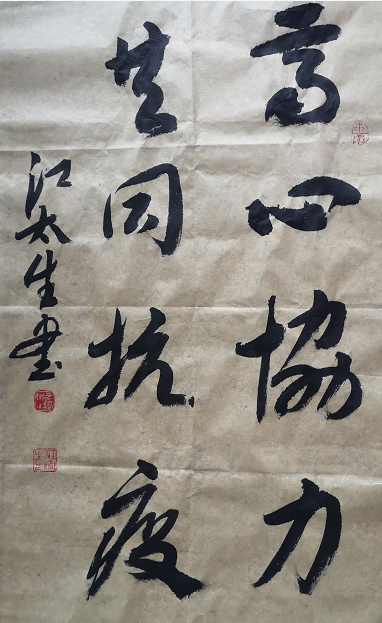 齐心協力
共同抗疫
江太生书